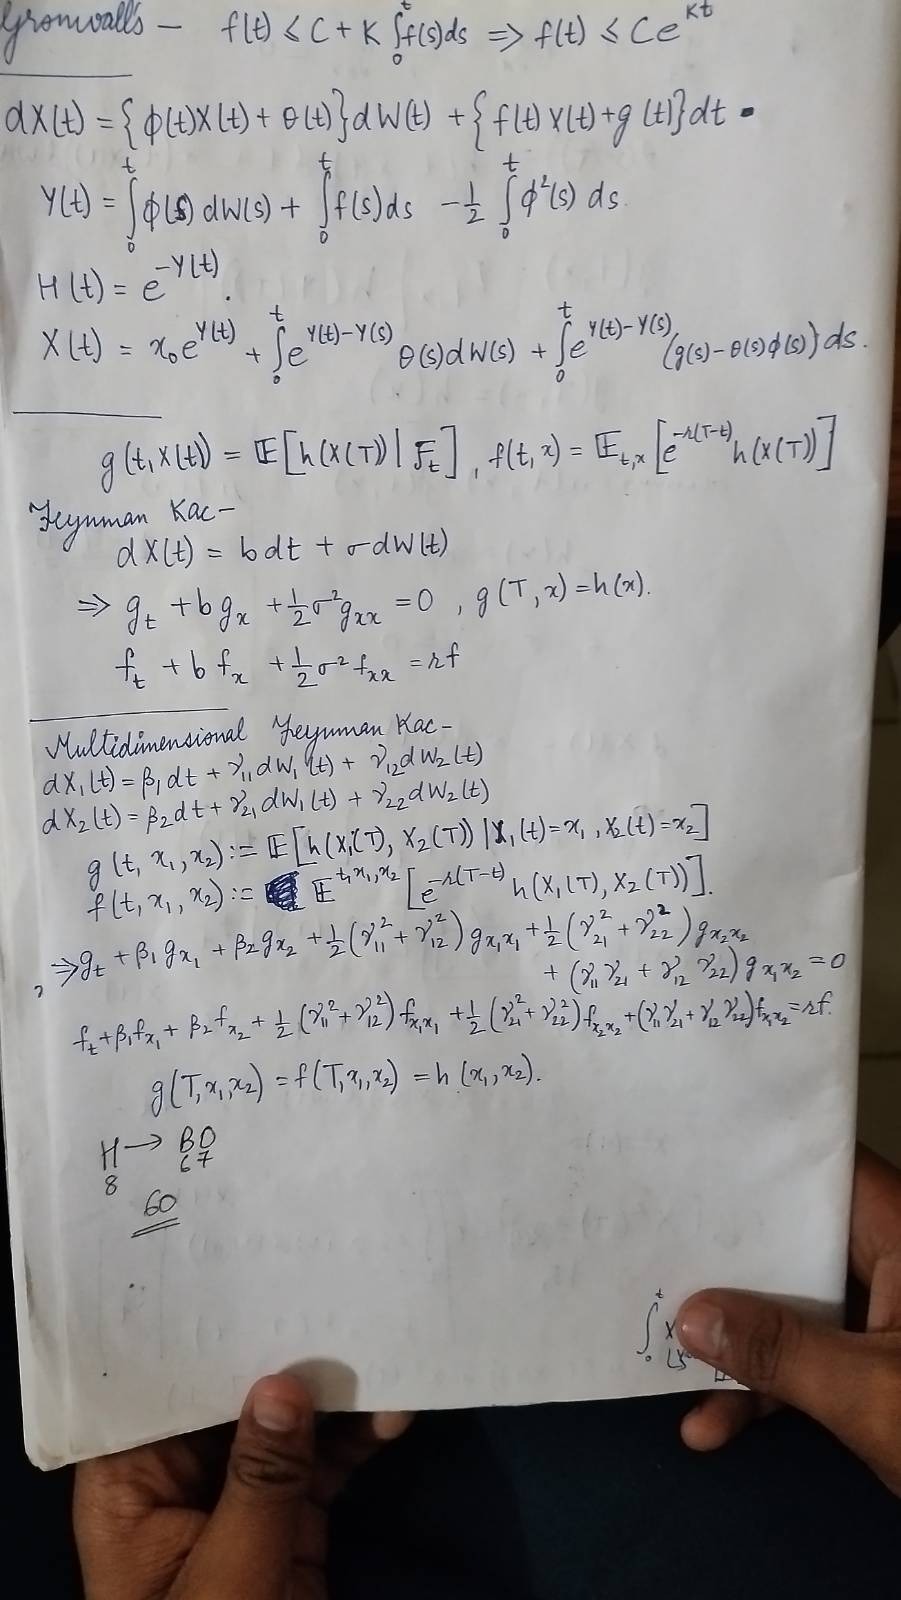 Gronwall's – f(t) ≤ C + K ∫₀ᵗ f(s)ds ⇒ f(t) ≤ Ce^{Kt}
dX(t) = {ϕ(t)X(t) + θ(t)}dW(t) + {f(t)X(t)+g(t)}dt.
Y(t) = ∫₀ᵗ ϕ(s) dW(s) + ∫₀ᵗ f(s)ds - ½ ∫₀ᵗ ϕ²(s) ds.
H(t) = e^{-Y(t)}.
X(t) = x₀e^{Y(t)} + ∫₀ᵗ e^{Y(t)-Y(s)} θ(s)dW(s) + ∫₀ᵗ e^{Y(t)-Y(s)} {g(s)-θ(s)ϕ(s)}ds.
g(t,X(t)) = 𝔼[h(X(T))|ℱ_t], f(t,x) = 𝔼_{t,x}[e^{-r(T-t)} h(X(T))]
Feynman Kac–
dX(t) = bdt + σdW(t)
⇒ g_t + bg_x + ½σ²g_{xx} = 0, g(T,x)=h(x).
f_t + b f_x + ½σ² f_{xx} = rf
Multidimensional Feynman Kac–
dX₁(t) = β₁dt + γ₁₁dW₁(t) + γ₁₂dW₂(t)
dX₂(t) = β₂dt + γ₂₁dW₁(t) + γ₂₂dW₂(t)
g(t, x₁, x₂) := 𝔼[h(X₁(T), X₂(T)) | X₁(t)=x₁, X₂(t)=x₂]
f(t, x₁, x₂) := 𝔼^{t,x₁,x₂}[e^{-r(T-t)} h(X₁(T), X₂(T))].
⇒ g_t + β₁g_{x₁} + β₂g_{x₂} + ½(γ₁₁² + γ₁₂²)g_{x₁x₁} + ½(γ₂₁² + γ₂₂²)g_{x₂x₂}
+ (γ₁₁γ₂₁ + γ₁₂γ₂₂)g_{x₁x₂} = 0
f_t + β₁f_{x₁} + β₂f_{x₂} + ½(γ₁₁² + γ₁₂²)f_{x₁x₁} + ½(γ₂₁² + γ₂₂²)f_{x₂x₂} + (γ₁₁γ₂₁ + γ₁₂γ₂₂)f_{x₁x₂} = rf.
g(T,x₁,x₂) = f(T,x₁,x₂) = h(x₁,x₂).
H → BD
8 67
60
∫₀ᵗ X